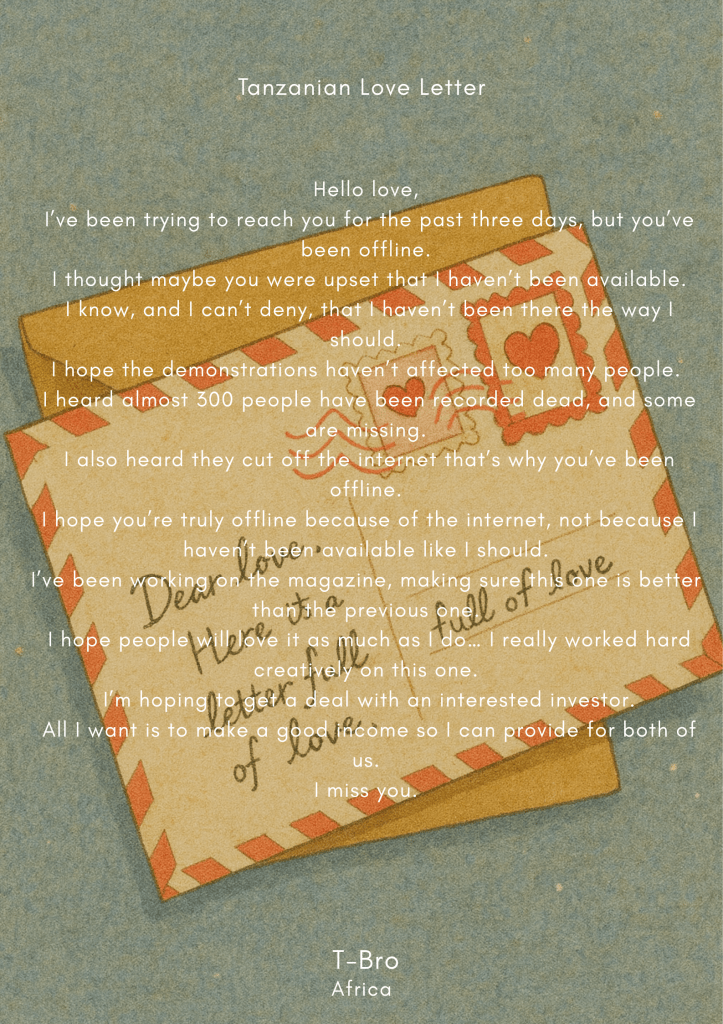 Tanzanian Love Letter
Hello love,
I've been trying to reach you for the past three days, but you've
been offline.
I thought maybe you were upset that I haven't been available.
I know, and I can't deny, that I haven't been there the way I
should.
I hope the demonstrations haven't affected too many people.
I heard almost 300 people have been recorded dead, and some
are missing.
I also heard they cut off the internet that's why you've been
offline.
I hope you're truly offline because of the internet, not because I
haven't been available like I should.
I've been working on the magazine, making sure this one is better
than the previous one.
I hope people will love it as much as I do… I really worked hard
creatively on this one.
I'm hoping to get a deal with an interested investor.
All I want is to make a good income so I can provide for both of
us.
I miss you.
Dear love,
Here is a
letter full
of love,
full of love
T-Bro
Africa